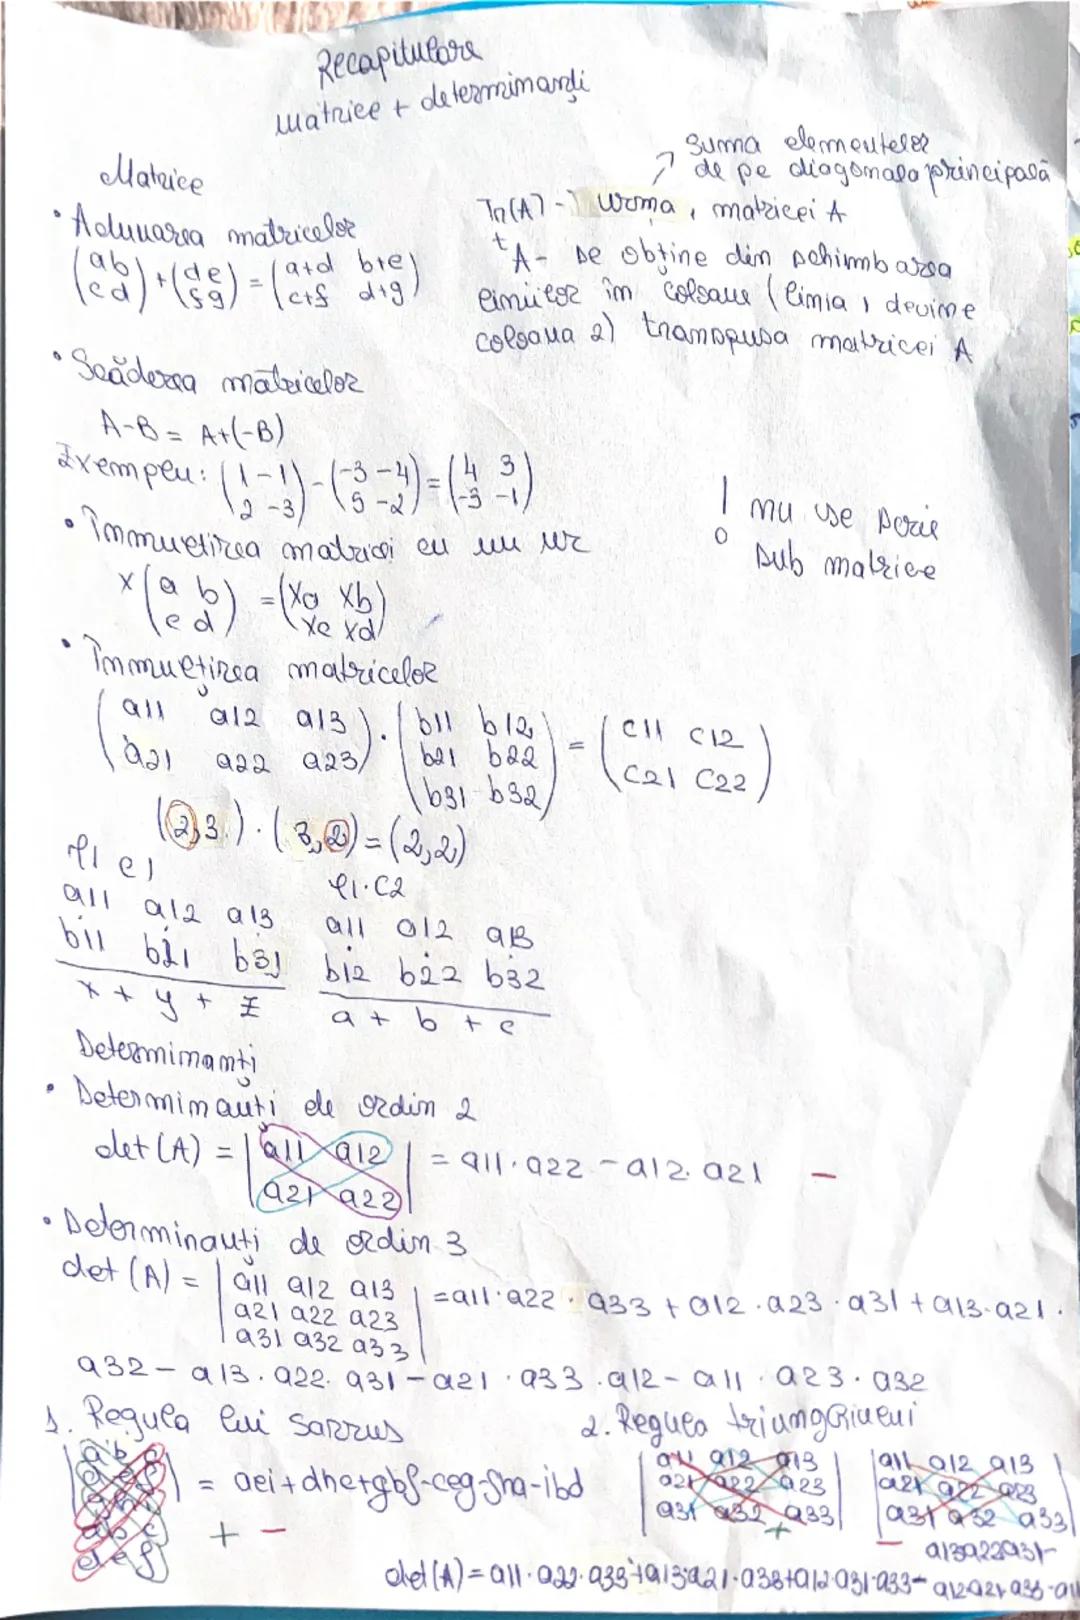 Recapitulare
matrice + determinanți
Matrice
suma elementelor
de pe diagonala principală
Tr(A) -> urma, matricei A
• Adunarea matricelor
(a b / c d) + (d e / f g) = (a+d b+e / c+f d+g)
tA - se obține din schimbarea
liniilor în coloane (linia 1 devine
coloana 2) transpusa matricei A
• Scăderea matricelor
A-B = A+(-B)
Exemplu: (1 -1 / 2 -3) - (-3 -4 / 5 -2) = (4 3 / -3 -1)
! nu se scrie
sub matrice
• Înmulțirea matricei cu un nr
x (a b / c d) = (xa xb / xc xd)
• Înmulțirea matricelor
(a11 a12 a13 / a21 a22 a23) · (b11 b12 / b21 b22 / b31 b32) = (c11 c12 / c21 c22)
(2,3) · (3,2) = (2,2)
l1 c1
l1·C2
a11 a12 a13
a11 a12 a13
b11 b21 b31
b12 b22 b32
x + y + z
a + b + c
Determinanți
• Determinanți de ordin 2
det(A) = |a11 a12 / a21 a22| = a11·a22 - a12·a21 -
• Determinanți de ordin 3
det(A) = |a11 a12 a13 / a21 a22 a23 / a31 a32 a33| = a11·a22·a33 + a12·a23·a31 + a13·a21·
a32 - a13·a22·a31 - a21·a33·a12 - a11·a23·a32
1. Regula lui Sarrus
|a b c / d e f / g h i| = aei+dhc+gbf-ceg-fha-ibd
a b c
d e f
+ -
2. Regula triunghiului
|a11 a12 a13 / a21 a22 a23 / a31 a32 a33| +
|a11 a12 a13 / a21 a22 a23 / a31 a32 a33| -
a13a22a31-
det(A) = a11·a22·a33+a13·a21·a38+a12·a31·a33-